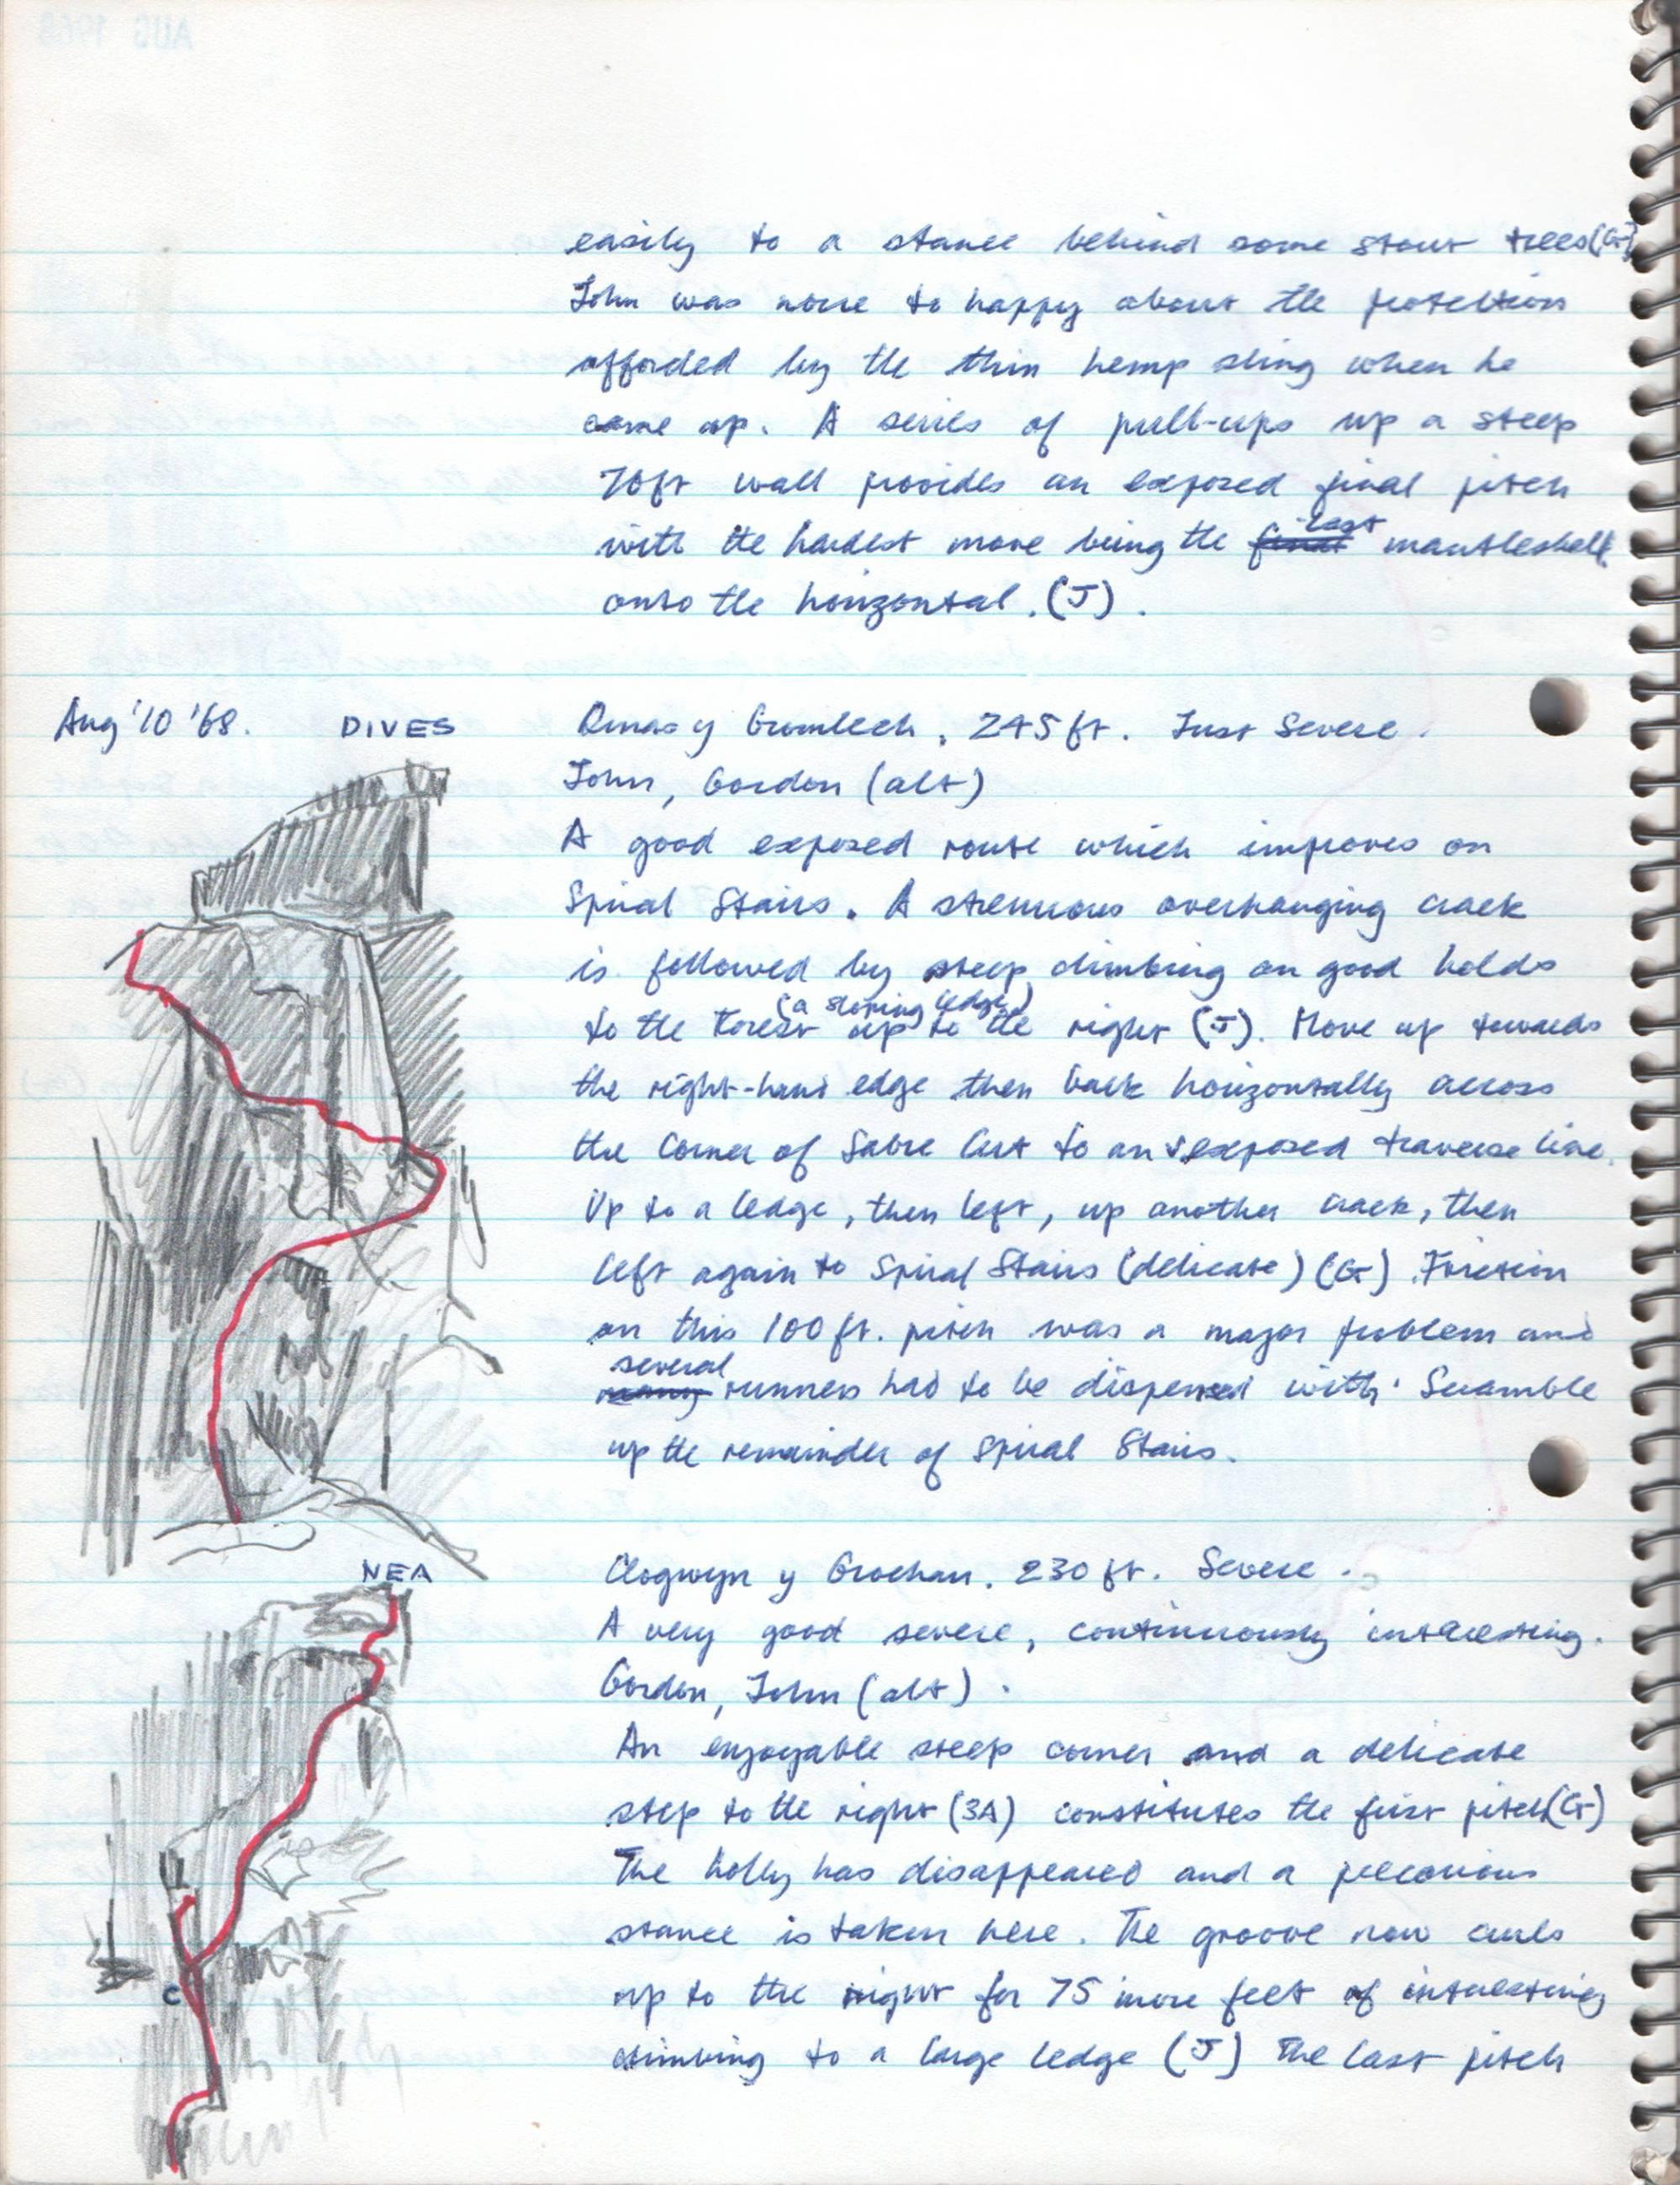 easily to a stance behind some stout trees (G)
John was none to happy about the protection
afforded by the thin hemp sling when he
came up. A series of pull-ups up a steep
70ft wall provides an exposed final pitch
with the hardest move being the final last mantleshelf
onto the horizontal. (J).
Aug '10 '68. DIVES Dinas y Cromlech, 245 ft. Just Severe.
John, Gordon (alt)
A good exposed route which improves on
Spiral Stairs. A strenuous overhanging crack
is followed by steep climbing on good holds
(a sloping ledge)
to the Forest up to the right (J). Move up towards
the right-hand edge then back horizontally across
the Corner of Sabre Cut to an exposed traverse line.
Up to a ledge, then left, up another crack, then
left again to Spiral Stairs (delicate) (G). Friction
on this 100 ft. pitch was a major problem and
several
many runners had to be dispensed with. Scramble
up the remainder of Spiral Stairs.
NEA Clogwyn y Grochan. 230 ft. Severe.
A very good severe, continuously interesting.
Gordon, John (alt).
An enjoyable steep corner and a delicate
step to the right (3A) constitutes the first pitch (G)
The holly has disappeared and a precarious
stance is taken here. The groove now curls
C up to the right for 75 more feet of interesting
climbing to a large ledge (J) The last pitch
AUG 1968